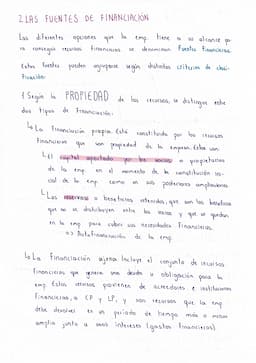 2. LAS FUENTES DE FINANCIACIÓN
Las diferentes opciones que la emp. tiene a su alcance pa
ra conseguir recursos financieros se denominan Fuentes Financieras.
Estas fuentes pueden agruparse según distintos criterios de clasi-
ficación:
1 Según la PROPIEDAD de los recursos, se distingue entre
dos tipos de Financiación:
↳ La Financiación propia. Está constituida por los recursos
Financieros que son propiedad de la empresa. Estos son
↳ El capital aportado por los socios o propietarios
de la emp. en el momento de la constitución so-
cial de la emp. como en sus posteriores ampliaciones
↳ Las reservas o beneficios retenidos, que son los beneficios
que no se distribuyen entre los socios y que se quedan
en la emp. para cubrir sus necesidades Financieras.
=> Autofinanciación de la emp
↳ La Financiación ajena. Incluye el conjunto de recursos
Financieros que genera una deuda u obligación para la
emp. Estos recursos provienen de acreedores e instituciones
Financieras, a CP y LP, y son recursos que la emp
debe devolver en un periodo de tiempo más o menos
amplio junto a unos intereses (gastos financieros)